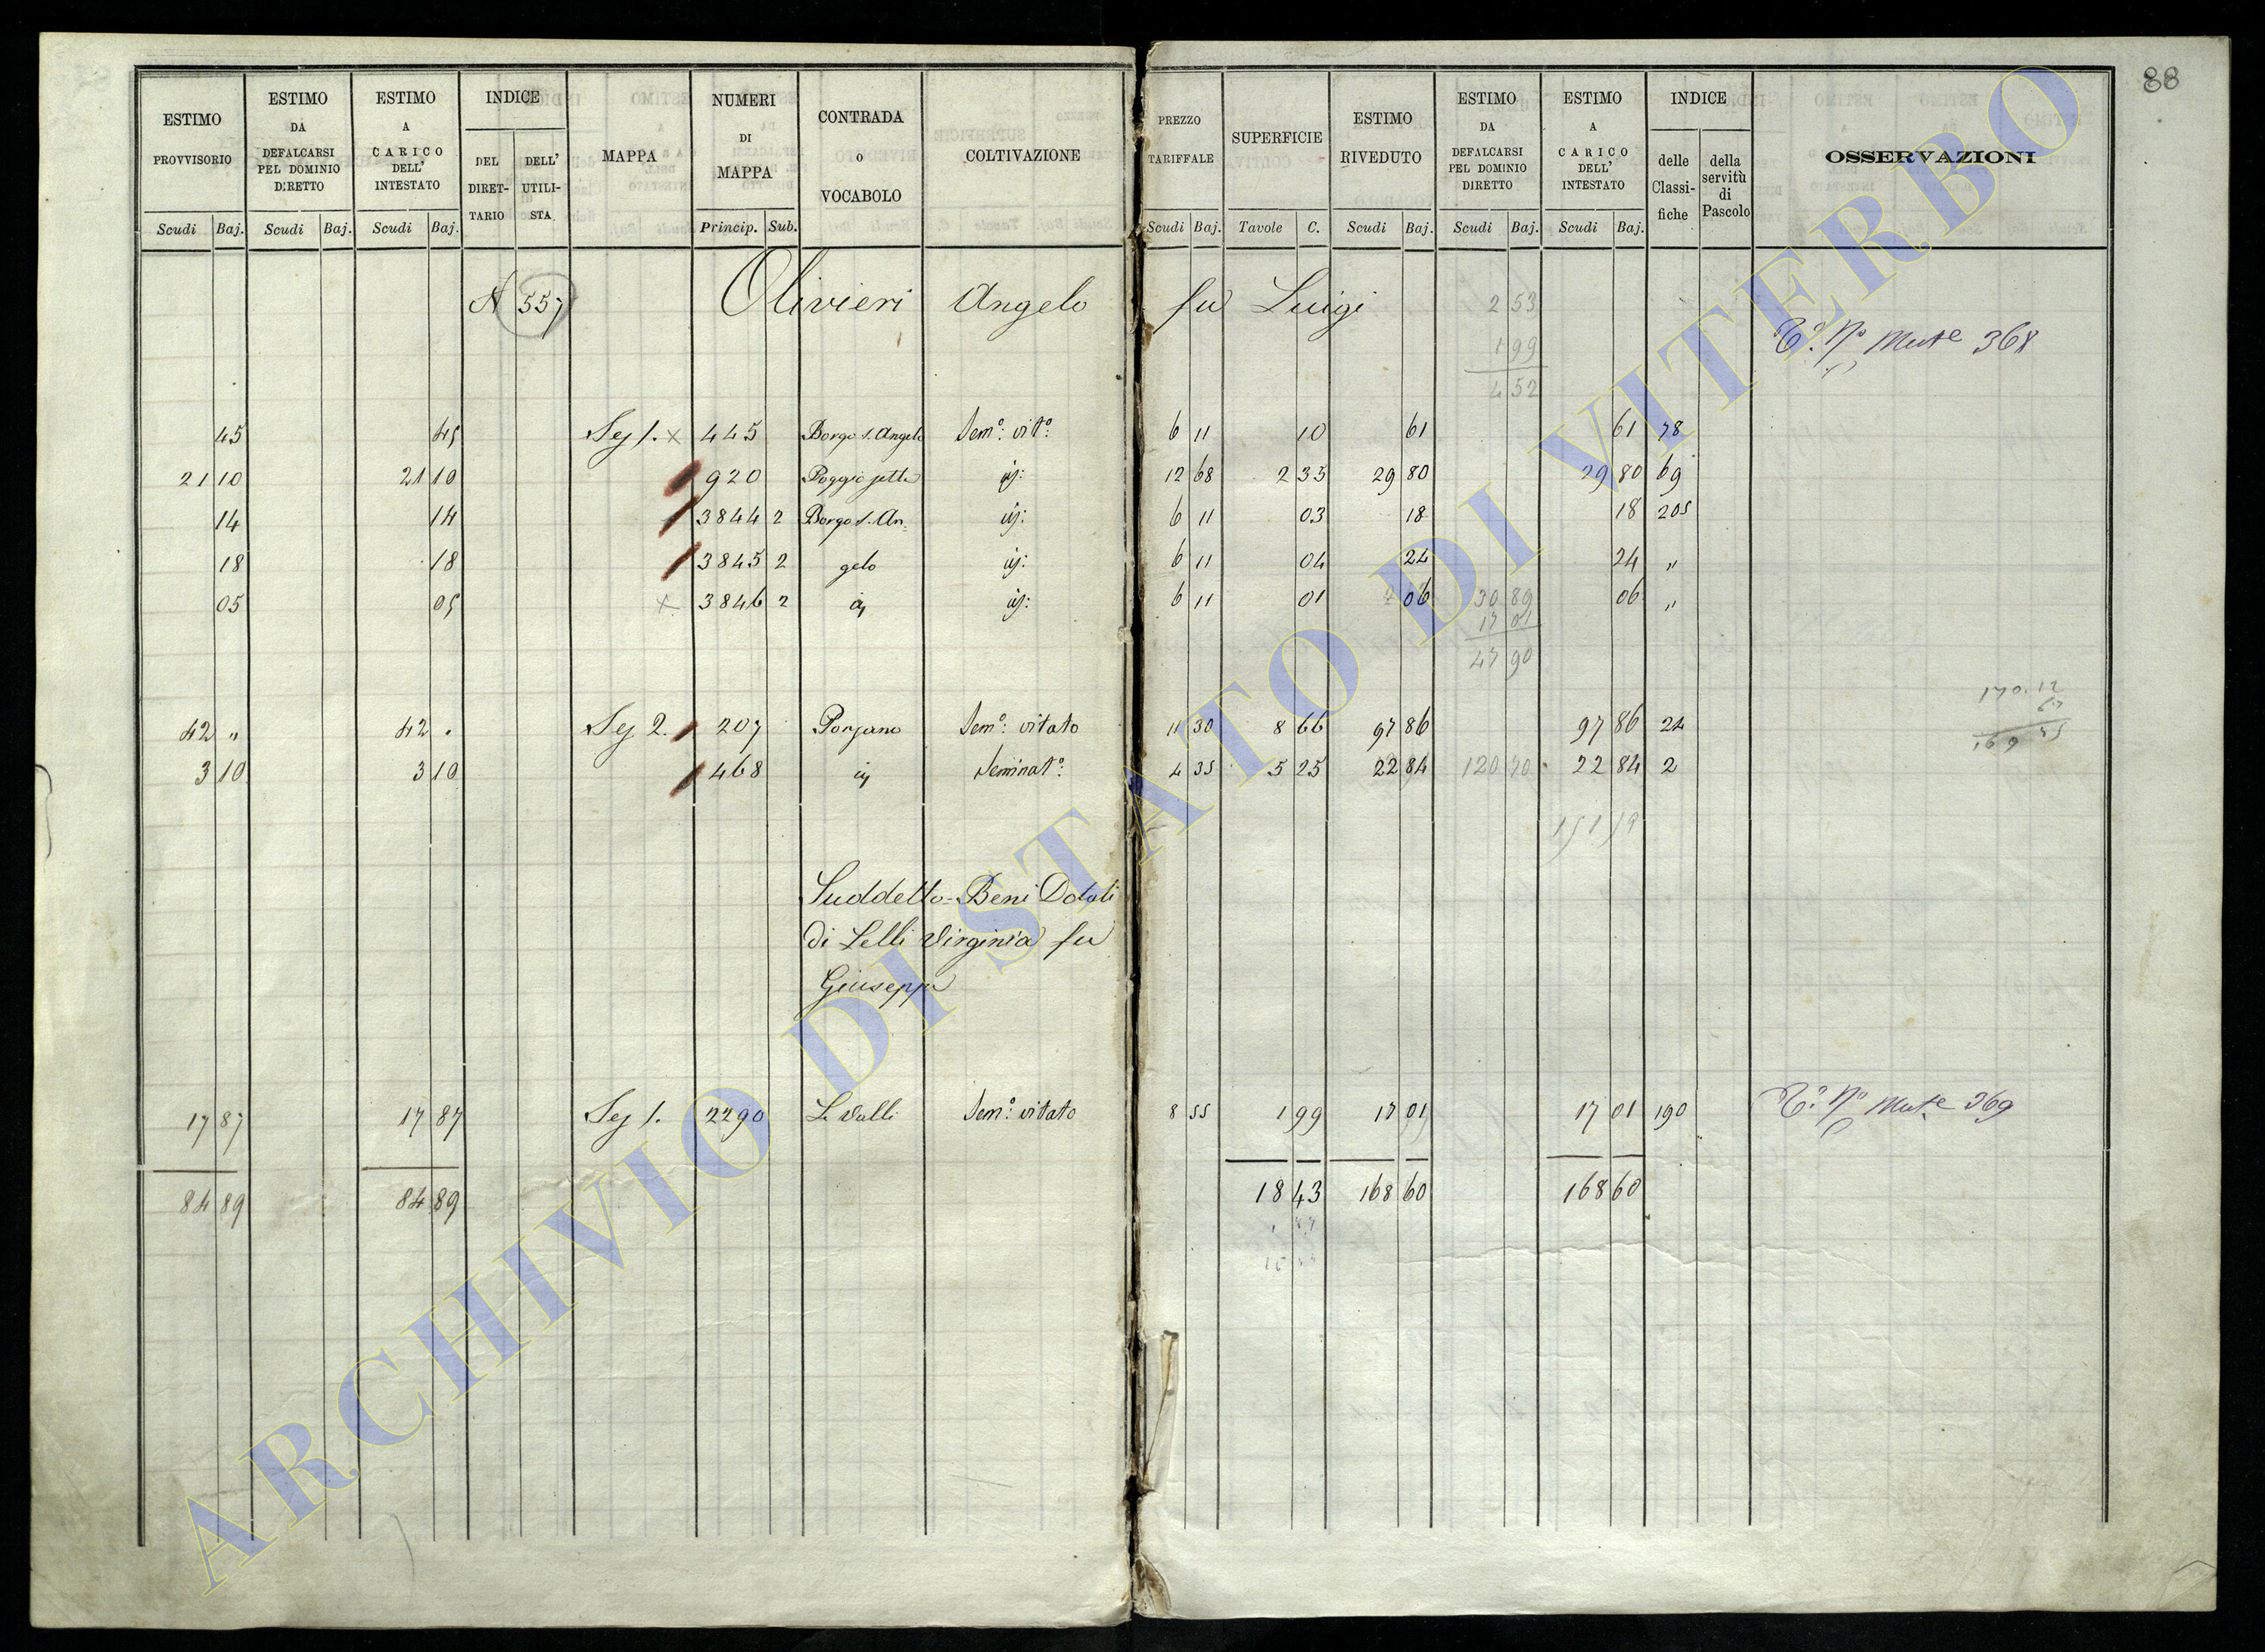 88
ESTIMO PROVVISORIO Scudi Baj.
ESTIMO DA DEFALCARSI PEL DOMINIO DIRETTO Scudi Baj.
ESTIMO A CARICO DELL' INTESTATO Scudi Baj.
INDICE DEL DIRET- TARIO DELL' UTILI- STA
MAPPA
NUMERI DI MAPPA Princip. Sub.
CONTRADA o VOCABOLO
COLTIVAZIONE
PREZZO TARIFFALE Scudi Baj.
SUPERFICIE Tavole C.
ESTIMO RIVEDUTO Scudi Baj.
ESTIMO DA DEFALCARSI PEL DOMINIO DIRETTO Scudi Baj.
ESTIMO A CARICO DELL' INTESTATO Scudi Baj.
INDICE delle Classi- fiche della servitù di Pascolo
OSSERVAZIONI
N 557 Olivieri Angelo fu Luigi
2 53
1 99
4 52
368
45 45 Sez 1. x 445 Borgo S. Angelo Sem.o vit.o 6 11 10 61 61 78
21 10 21 10 920 Poggio sette id: 12 68 2 35 29 80 29 80 69
14 14 3844 2 Borgo S. An= id: 6 11 03 18 18 205
18 18 3845 2 gelo id: 6 11 04 24 24 "
05 05 x 3846 2 id id: 6 11 01 06 06 "
30 89
17 01
47 90
170.12
42 " 42 " Sez 2. 207 Porzano Sem.o vitato 11 30 8 66 97 86 97 86 24
3 10 3 10 468 id Seminat.o 4 35 5 25 22 84 120 70 22 84 2
151 59
Suddetto = Beni Dotali
di Lelli Virginia fu
Giuseppe
17 87 17 87 Sez 1. 2290 Le Valli Sem.o vitato 8 55 1 99 17 01 17 01 190 369
84 89 84 89 18 43 168 60 168 60
ARCHIVIO DI STATO DI VITERBO